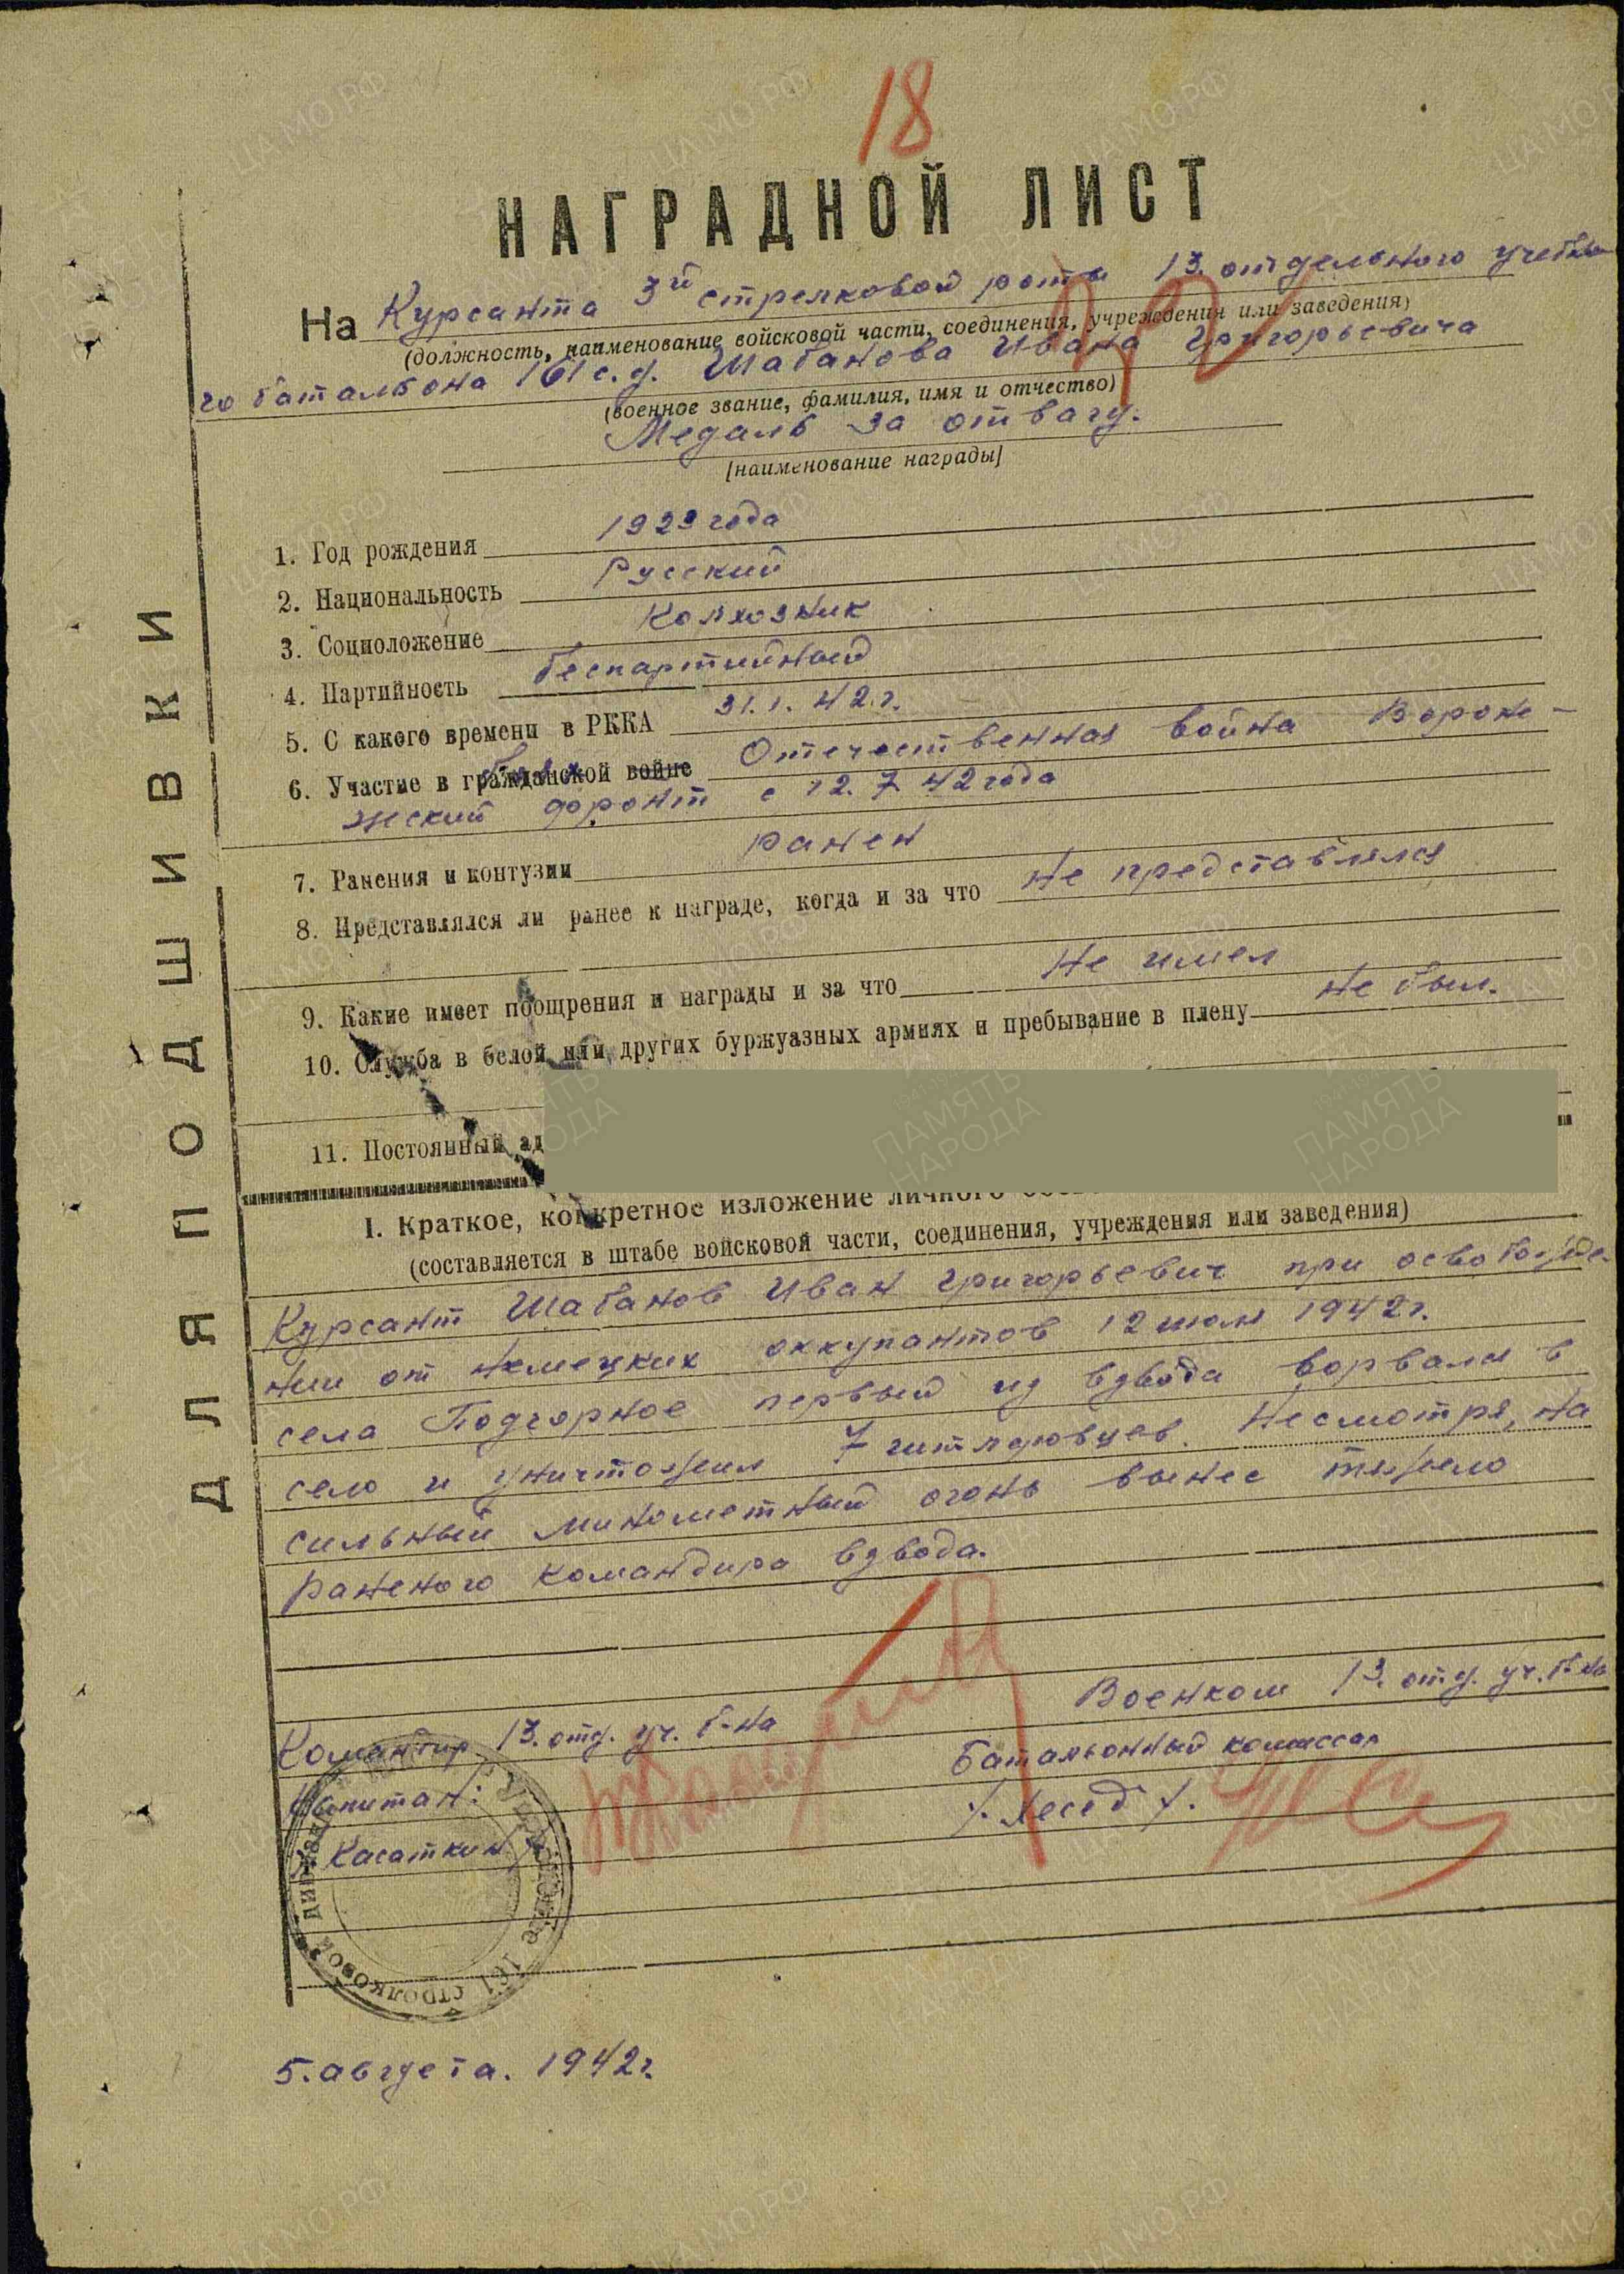 18
НАГРАДНОЙ ЛИСТ
На Курсанта 3й стрелковой роты 13. отдельного учебно-
(должность, наименование войсковой части, соединения, учреждения или заведения)
го батальона 161 с.д. Шабанова Ивана Григорьевича
(военное звание, фамилия, имя и отчество)
Медаль за отвагу.
[наименование награды]
1. Год рождения 1923 года
2. Национальность Русский
3. Соцположение Колхозник
4. Партийность беспартийный
5. С какого времени в РККА 31.1.42.г.
6. Участие в гражданской войне Отечественная война Вороне-
жский фронт с 12.7.42 года
7. Ранения и контузии ранен
8. Представлялся ли ранее к награде, когда и за что Не представлялся
9. Какие имеет поощрения и награды и за что Не имел
10. Служба в белой или других буржуазных армиях и пребывание в плену Не был.
11. Постоянный ад
I. Краткое, конкретное изложение личного
(составляется в штабе войсковой части, соединения, учреждения или заведения)
Курсант Шабанов Иван Григорьевич при освобожде-
нии от немецких оккупантов 12 июля 1942г.
села Подгорное первый из взвода ворвался в
село и уничтожил 7 гитлеровцев. Несмотря, на
сильный минометный огонь вынес тяжело
раненого командира взвода.
Командир 13. отд. уч. б-на
Военком 13. отд. уч. б-на
Капитан:
Батальонный комиссар
/Касаткин/
ДЛЯ ПОДШИВКИ
161 стрелковой дивизии
5. августа. 1942г.
ПАМЯТЬ НАРОДА
ЦАМО.РФ